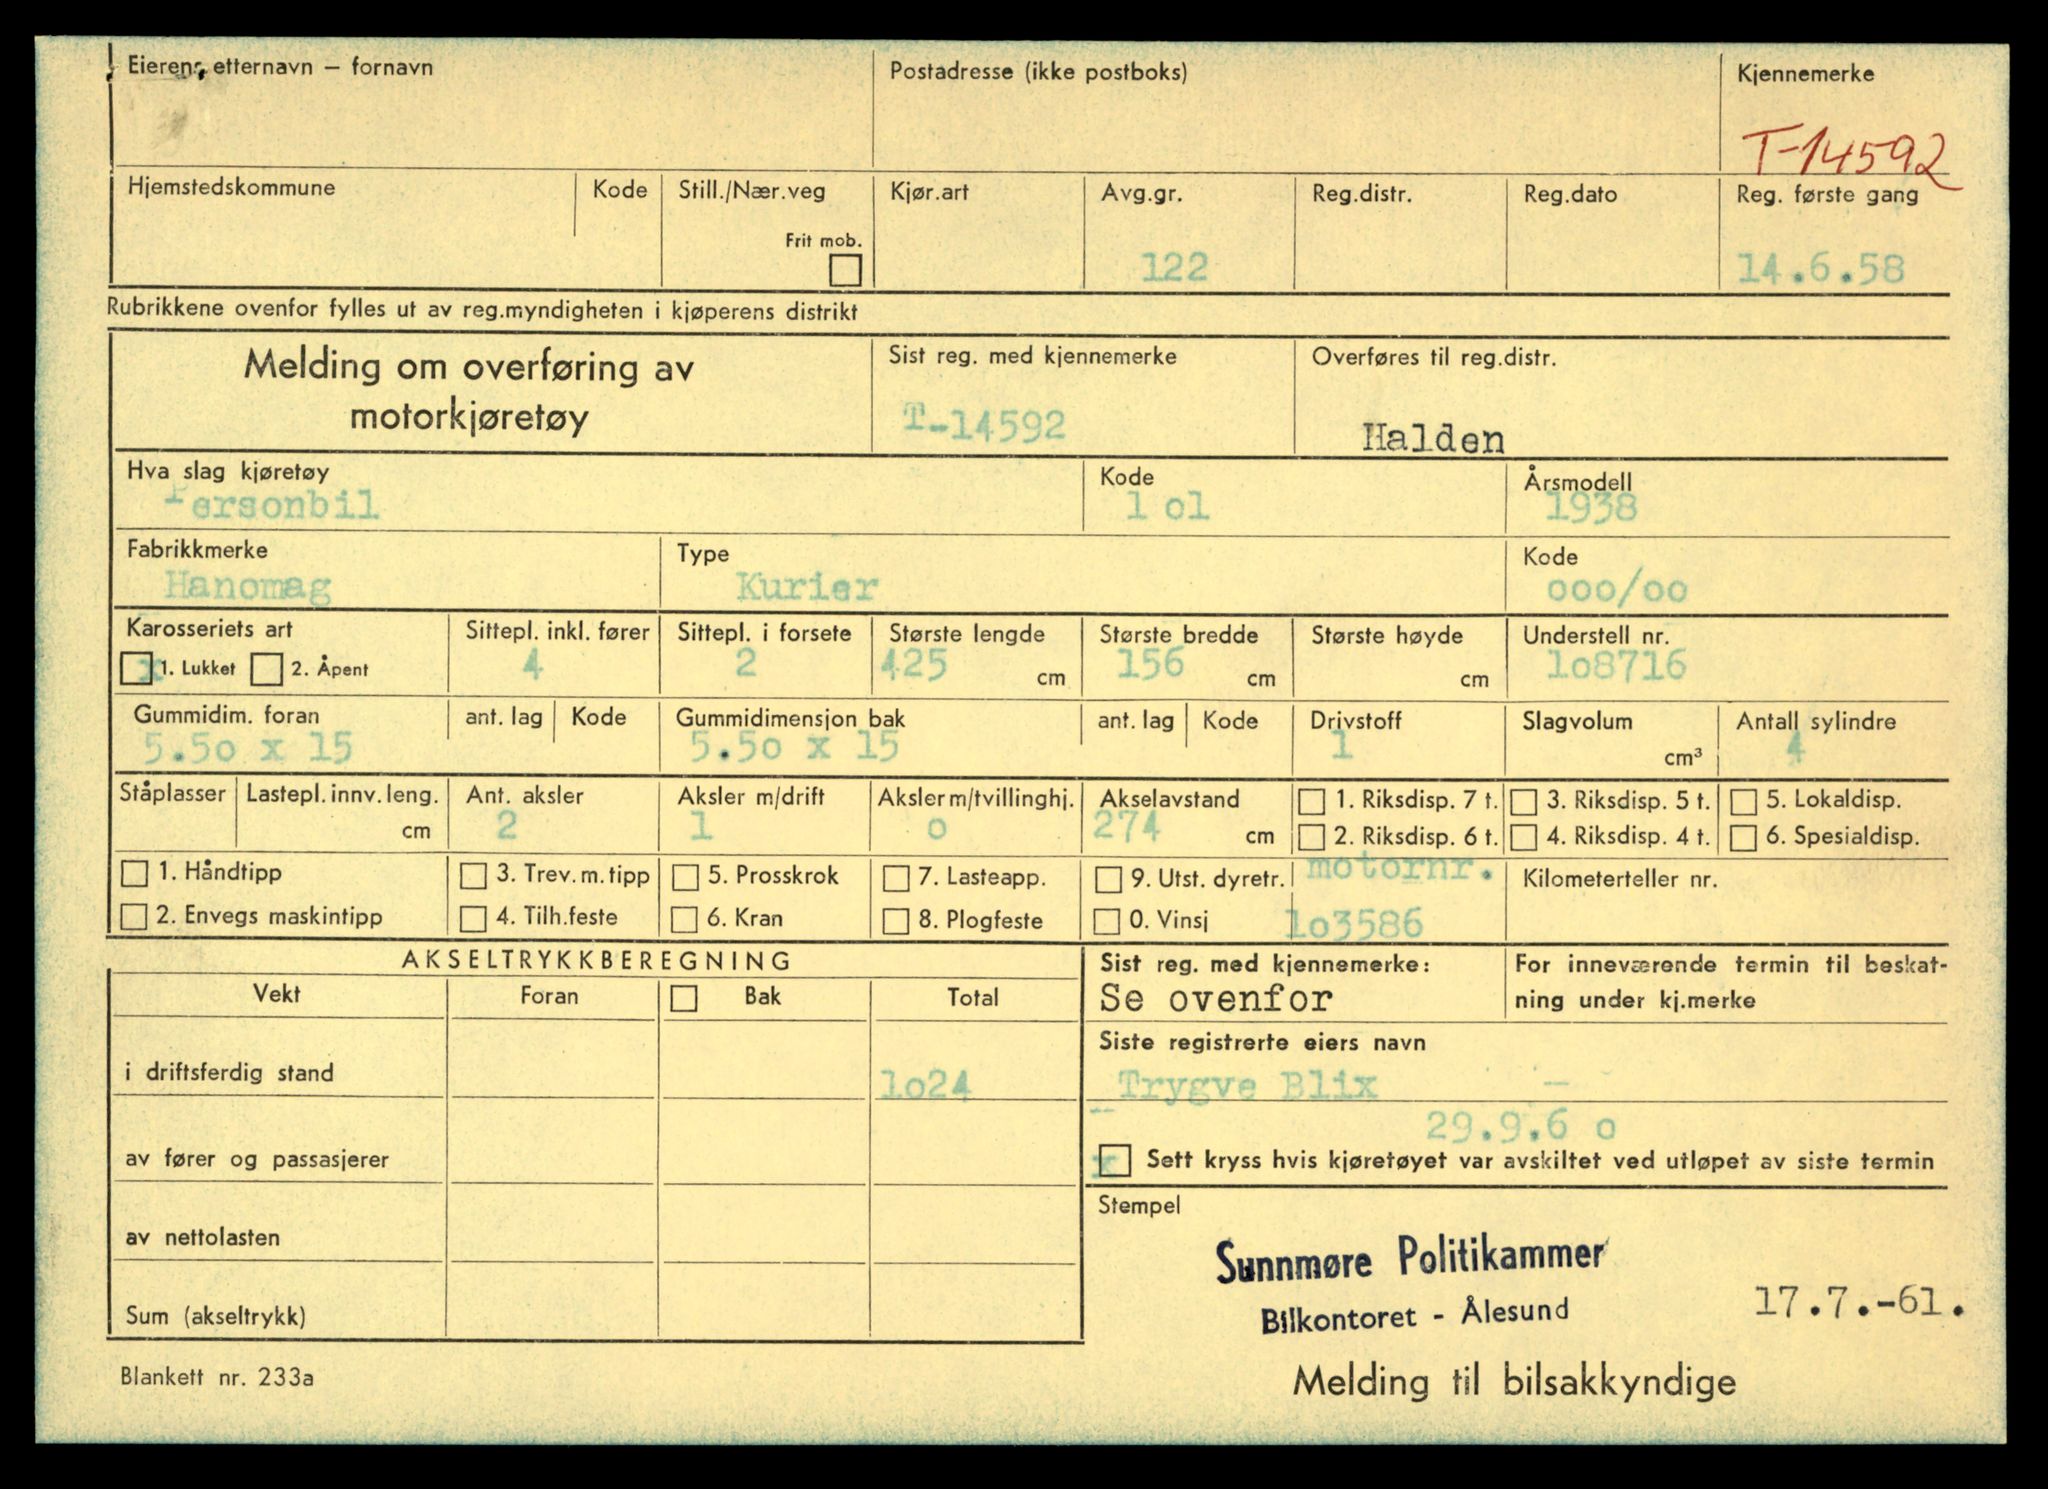 Eierens etternavn – fornavn
Postadresse (ikke postboks)
Kjennemerke
T-14592
Hjemstedskommune
Kode
Still./Nær.veg
Kjør.art
Avg.gr.
Reg.distr.
Reg.dato
Reg. første gang
Frit mob.
122
14.6.58
Rubrikkene ovenfor fylles ut av reg.myndigheten i kjøperens distrikt
Melding om overføring av
motorkjøretøy
Sist reg. med kjennemerke
T-14592
Overføres til reg.distr.
Halden
Hva slag kjøretøy
Personbil
Kode
1 o1
Årsmodell
1938
Fabrikkmerke
Hanomag
Type
Kurier
Kode
ooo/oo
Karosseriets art
x 1. Lukket 2. Åpent
Sittepl. inkl. fører
4
Sittepl. i forsete
2
Største lengde
425 cm
Største bredde
156 cm
Største høyde
cm
Understell nr.
1o8716
Gummidim. foran
5.5o x 15
ant. lag
Kode
Gummidimensjon bak
5.5o x 15
ant. lag
Kode
Drivstoff
1
Slagvolum
cm³
Antall sylindre
4
Ståplasser
Lastepl. innv. leng.
cm
Ant. aksler
2
Aksler m/drift
1
Aksler m/tvillinghj.
o
Akselavstand
274 cm
1. Riksdisp. 7 t.
3. Riksdisp. 5 t.
5. Lokaldisp.
2. Riksdisp. 6 t.
4. Riksdisp. 4 t.
6. Spesialdisp.
1. Håndtipp
3. Trev. m. tipp
5. Prosskrok
7. Lasteapp.
9. Utst. dyretr.
motornr.
Kilometerteller nr.
2. Envegs maskintipp
4. Tilh.feste
6. Kran
8. Plogfeste
0. Vinsj
1o3586
AKSELTRYKKBEREGNING
Vekt
Foran
Bak
Total
Sist reg. med kjennemerke:
Se ovenfor
For inneværende termin til beskat-
ning under kj.merke
i driftsferdig stand
1o24
Siste registrerte eiers navn
Trygve Blix –
– 29.9.6 o
av fører og passasjerer
x Sett kryss hvis kjøretøyet var avskiltet ved utløpet av siste termin
av nettolasten
Sum (akseltrykk)
Stempel
Sunnmøre Politikammer
Bilkontoret - Ålesund
17.7.-61.
Blankett nr. 233a
Melding til bilsakkyndige